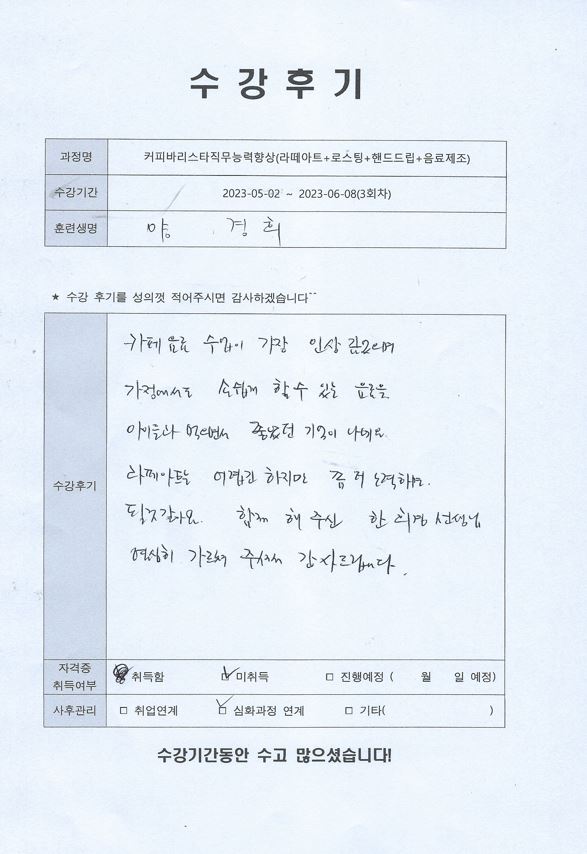 수강후기
과정명 커피바리스타직무능력향상(라떼아트+로스팅+핸드드립+음료제조)
수강기간 2023-05-02 ~ 2023-06-08(3회차)
훈련생명 양 경희
★ 수강 후기를 성의껏 적어주시면 감사하겠습니다~~
수강후기
카페음료 수업이 가장 인상 깊었으며
가정에서도 손쉽게 할 수 있는 음료를
아이들과 먹으면서 좋았던 기억이 나네요
라떼아트는 어렵긴 하지만 좀 더 노력하면.
될것같아요. 함께 해 주신 한 희경 선생님
열심히 가르쳐 주셔서 감사드립니다.
자격증 취득여부 취득함 □ 미취득 □ 진행예정 ( 월 일 예정)
사후관리 □ 취업연계 □ 심화과정 연계 □ 기타( )
수강기간동안 수고 많으셨습니다!